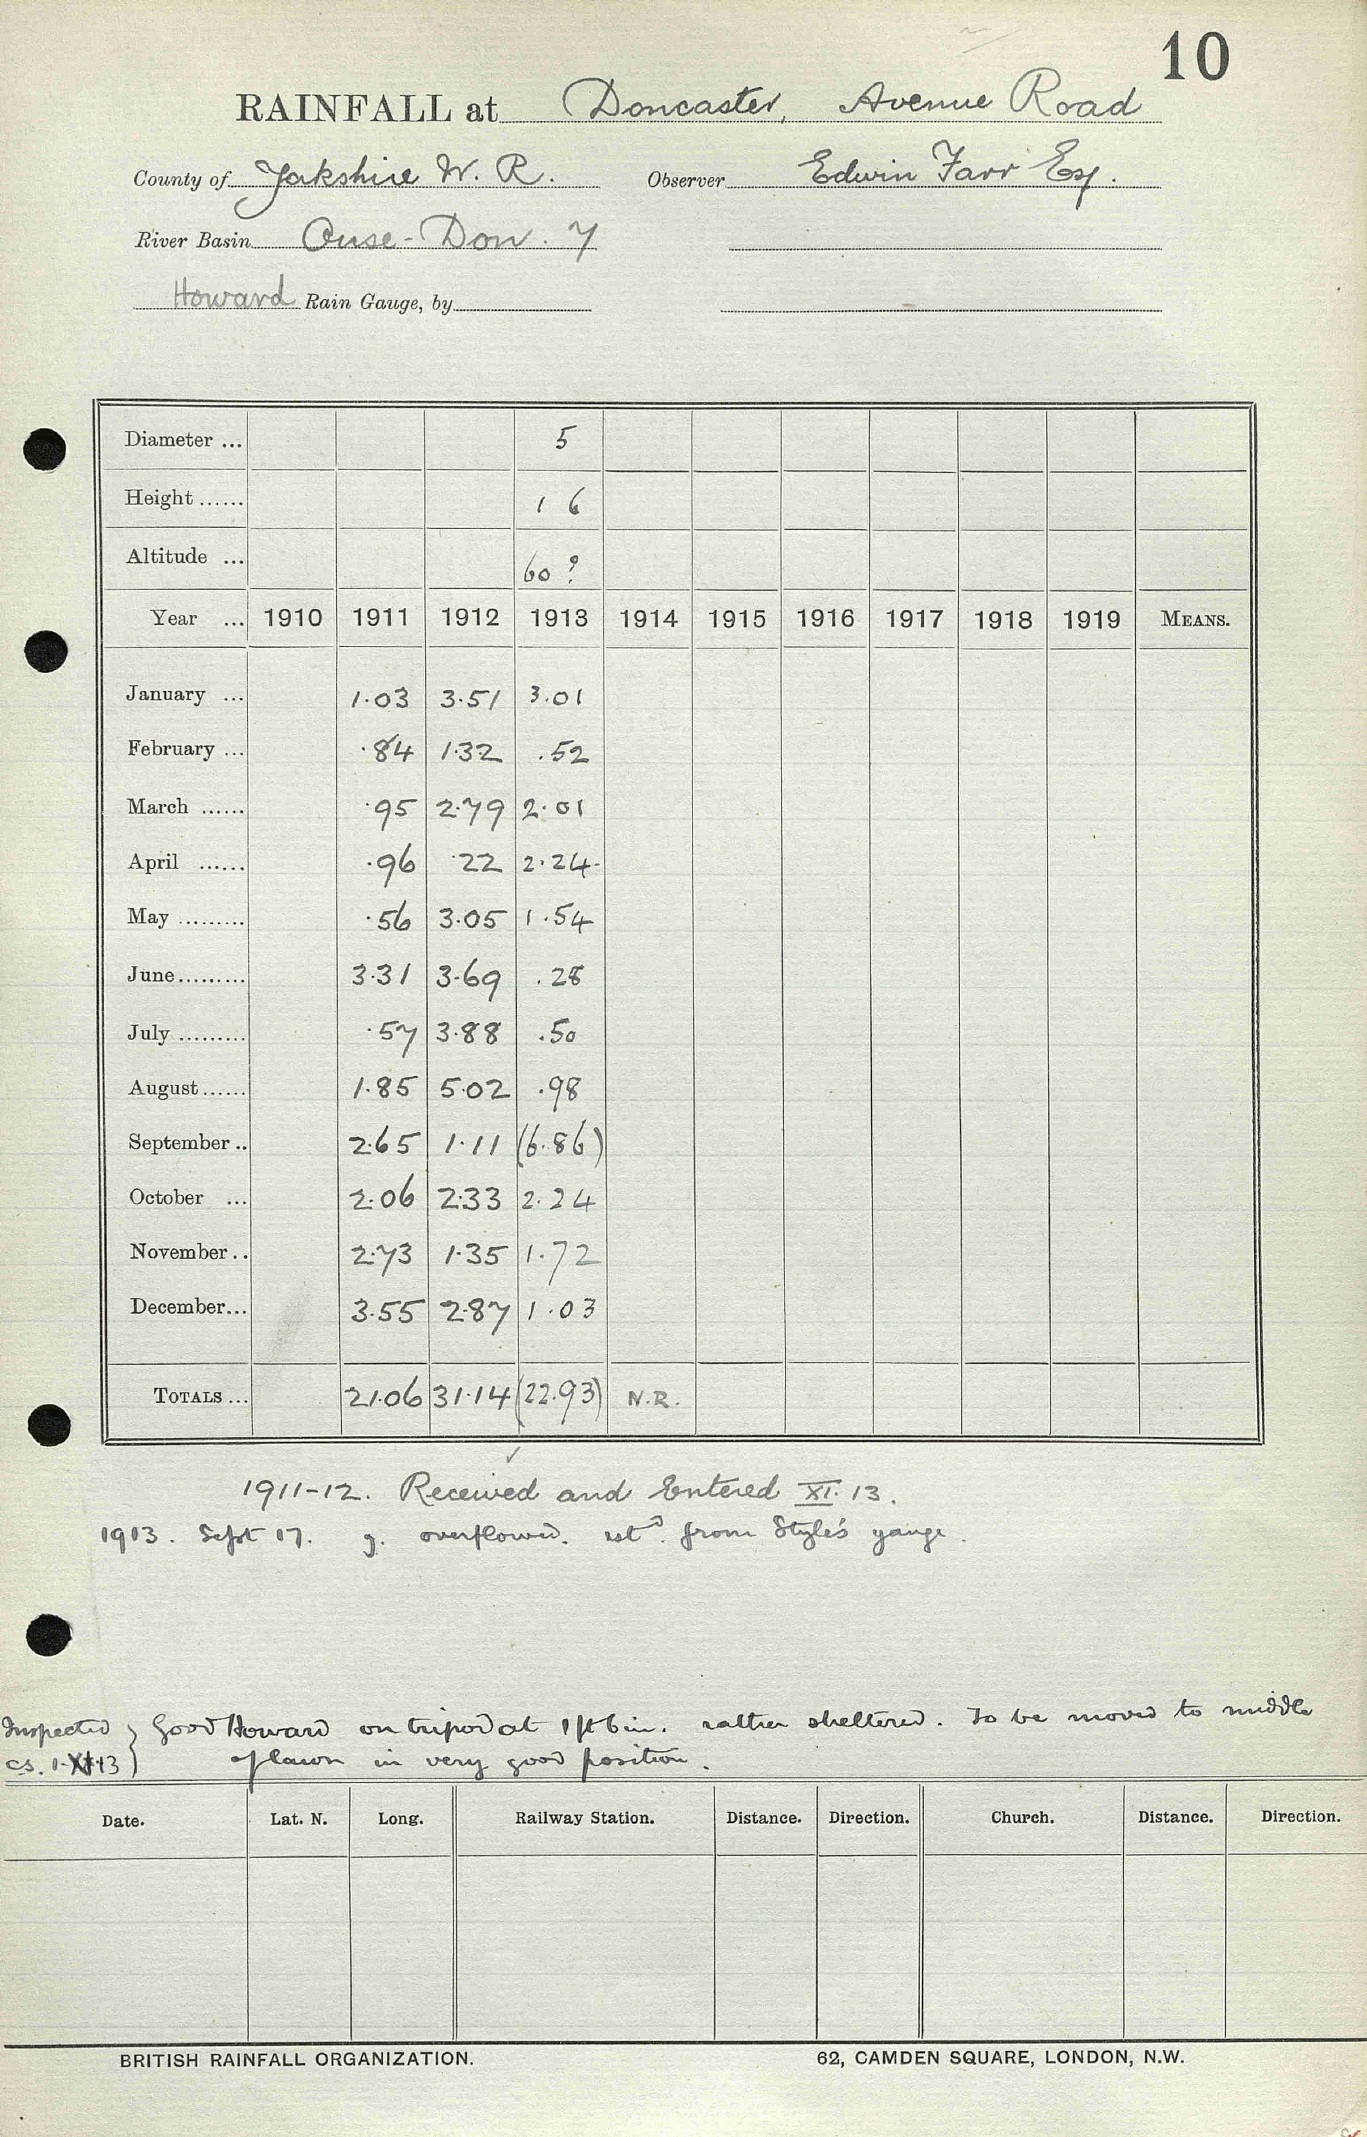 10
RAINFALL at Doncaster, Avenue Road
County of Yorkshire W. R. Observer Edwin Farr Esq.
River Basin Ouse-Don. 7
Howard Rain Gauge, by
Diameter ... 5
Height ...... 1 6
Altitude ... 60 ?
Year ... 1910 1911 1912 1913 1914 1915 1916 1917 1918 1919 MEANS.
January ... 1.03 3.51 3.01
February ... .84 1.32 .52
March ...... .95 2.79 2.01
April ...... .96 .22 2.24
May ......... .56 3.05 1.54
June ......... 3.31 3.69 .28
July ......... .57 3.88 .50
August ...... 1.85 5.02 .98
September .. 2.65 1.11 (6.86)
October ... 2.06 2.33 2.24
November .. 2.73 1.35 1.72
December ... 3.55 2.87 1.03
TOTALS ... 21.06 31.14 (22.93) N.R.
1911-12. Received and Entered XI. 13.
1913. Sept 17. g. overflowed. estd. from Style's gauge.
Inspected } Good Howard on tripod at 1ft 6in. rather sheltered. To be moved to middle
C.S. 13 } of lawn in very good position.
Date. Lat. N. Long. Railway Station. Distance. Direction. Church. Distance. Direction.
BRITISH RAINFALL ORGANIZATION. 62, CAMDEN SQUARE, LONDON, N.W.